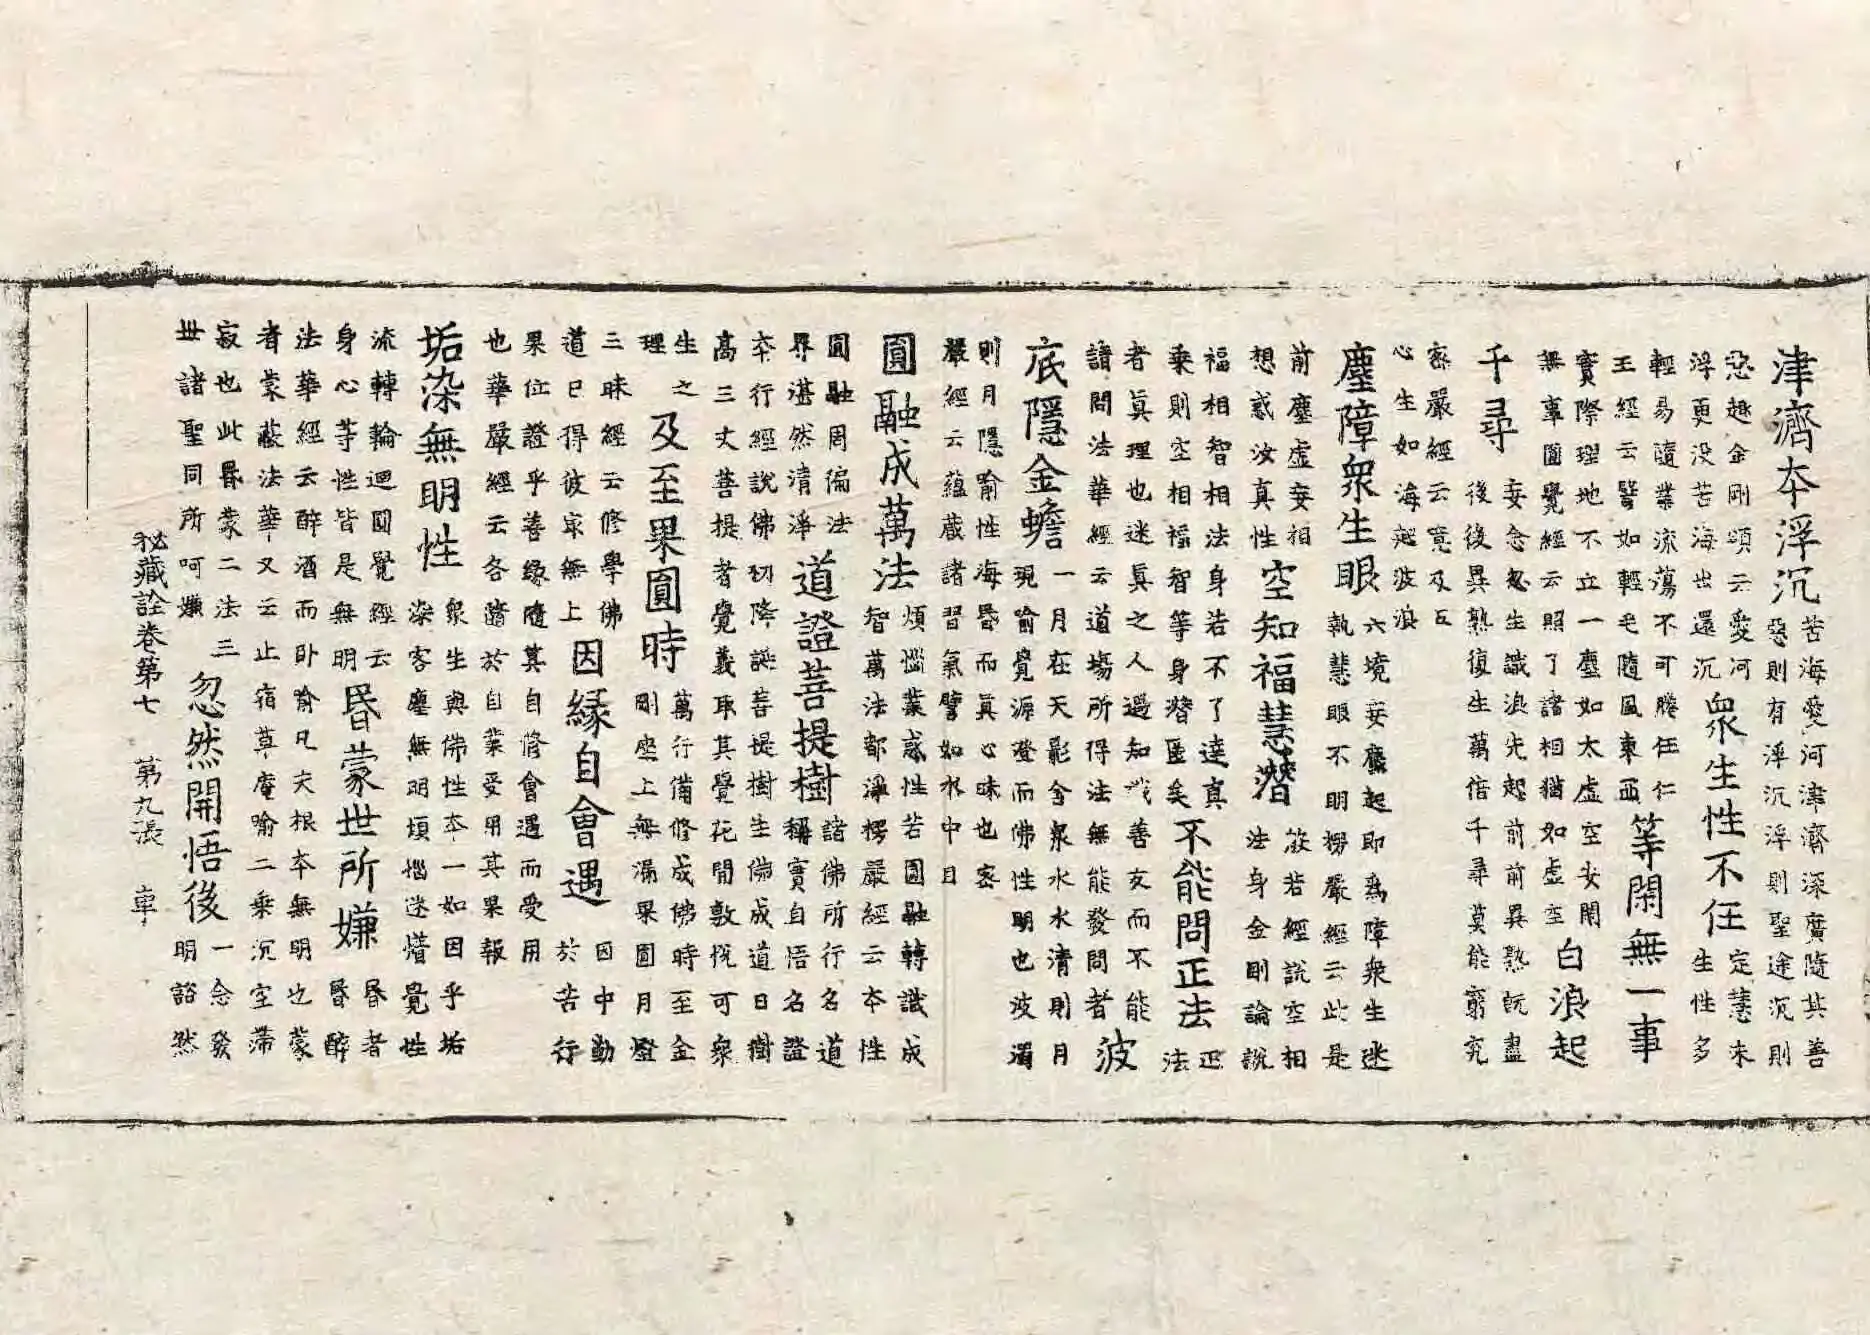 津濟本浮沉
苦海愛河津濟深廣隨其善
惡則有浮沉浮則聖途沉則
惡趣金剛頌云愛河
浮更没苦海出還沉
衆生性不任
定慧未
生性多
輕易隨業流蕩不可勝任仁
王經云譬如輕毛隨風東西
等閑無一事
實際理地不立一塵如太虛空安閑
無事圓覺經云照了諸相猶如虛空
白浪起
千尋
妄念忽生識浪先起前前異熟旣盡
後後異熟復生萬倍千尋莫能窮究
密嚴經云意及五
心生如海起波浪
塵障衆生眼
六境妄塵起即爲障衆生迷
執慧眼不明楞嚴經云此是
前塵虛妄相
想惑汝真性
空知福慧潛
般若經説空相
法身金剛論説
福相智相法身若不了達真
乘則空相福智等身潛匿矣
不能問正法
正
法
者眞理也迷眞之人遇知識善友而不能
諸問法華經云道場所得法無能發問者
波
底隱金蟾
一月在天影含衆水水清則月
現喻覺源澄而佛性明也波濁
則月隱喻性海昏而真心昧也密
嚴經云蘊藏諸習氣譬如水中月
圓融成萬法
煩惱業惑性若圓融轉識成
智萬法都淨楞嚴經云本性
圓融周徧法
界湛然清淨
道證菩提樹
諸佛所行名道
稱實自悟名證
本行經説佛初降誕菩提樹生佛成道日樹
高三丈菩提者覺義取其覺花開敷悦可衆
生之
理
及至果圓時
萬行備修成佛時至金
剛座上無漏果圓月燈
三昧經云修學佛
道已得彼求無上
因緣自會遇
因中勤
於苦行
果位證乎善緣隨其自修會遇而受用
也華嚴經云各隨於自業受用其果報
垢染無明性
衆生與佛性本一如因乎垢
染客塵無明煩惱迷懵覺性
流轉輪迴圓覺經云
身心等性皆是無明
昏蒙世所嫌
昏者
昏醉
法華經云醉酒而卧喻凡夫根本無明也蒙
者蒙蔽法華又云止宿草庵喻二乘沉空滯
寂也此昏蒙二法三
世諸聖同所呵嫌
忽然開悟後
一念發
明豁然
秘藏詮卷第七 第九張 韋